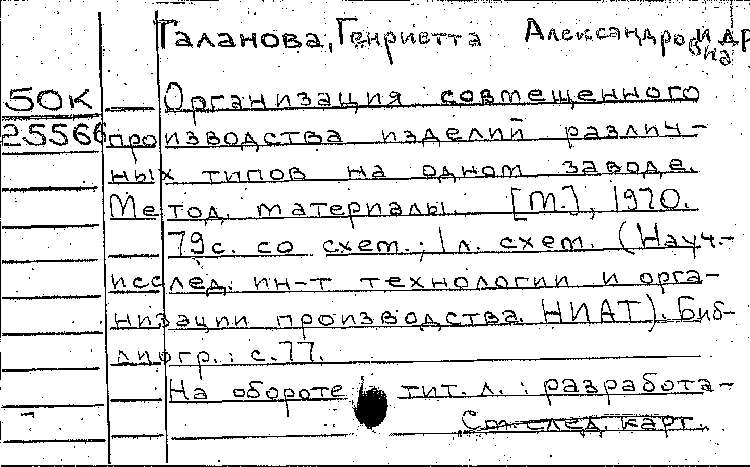 Галанова, Генриетта Александровна и др
50К Организация совмещенного
25566 производства изделий различ-
ных типов на одном заводе.
Метод. материалы. [М.], 1970.
79с. со схем.; 1 л. схем. (Науч.-
исслед. ин-т технологии и орга-
низации производства. НИАТ). Биб-
лиогр.: с.77.
На обороте тит. л.: разработа-
См. след. карт.